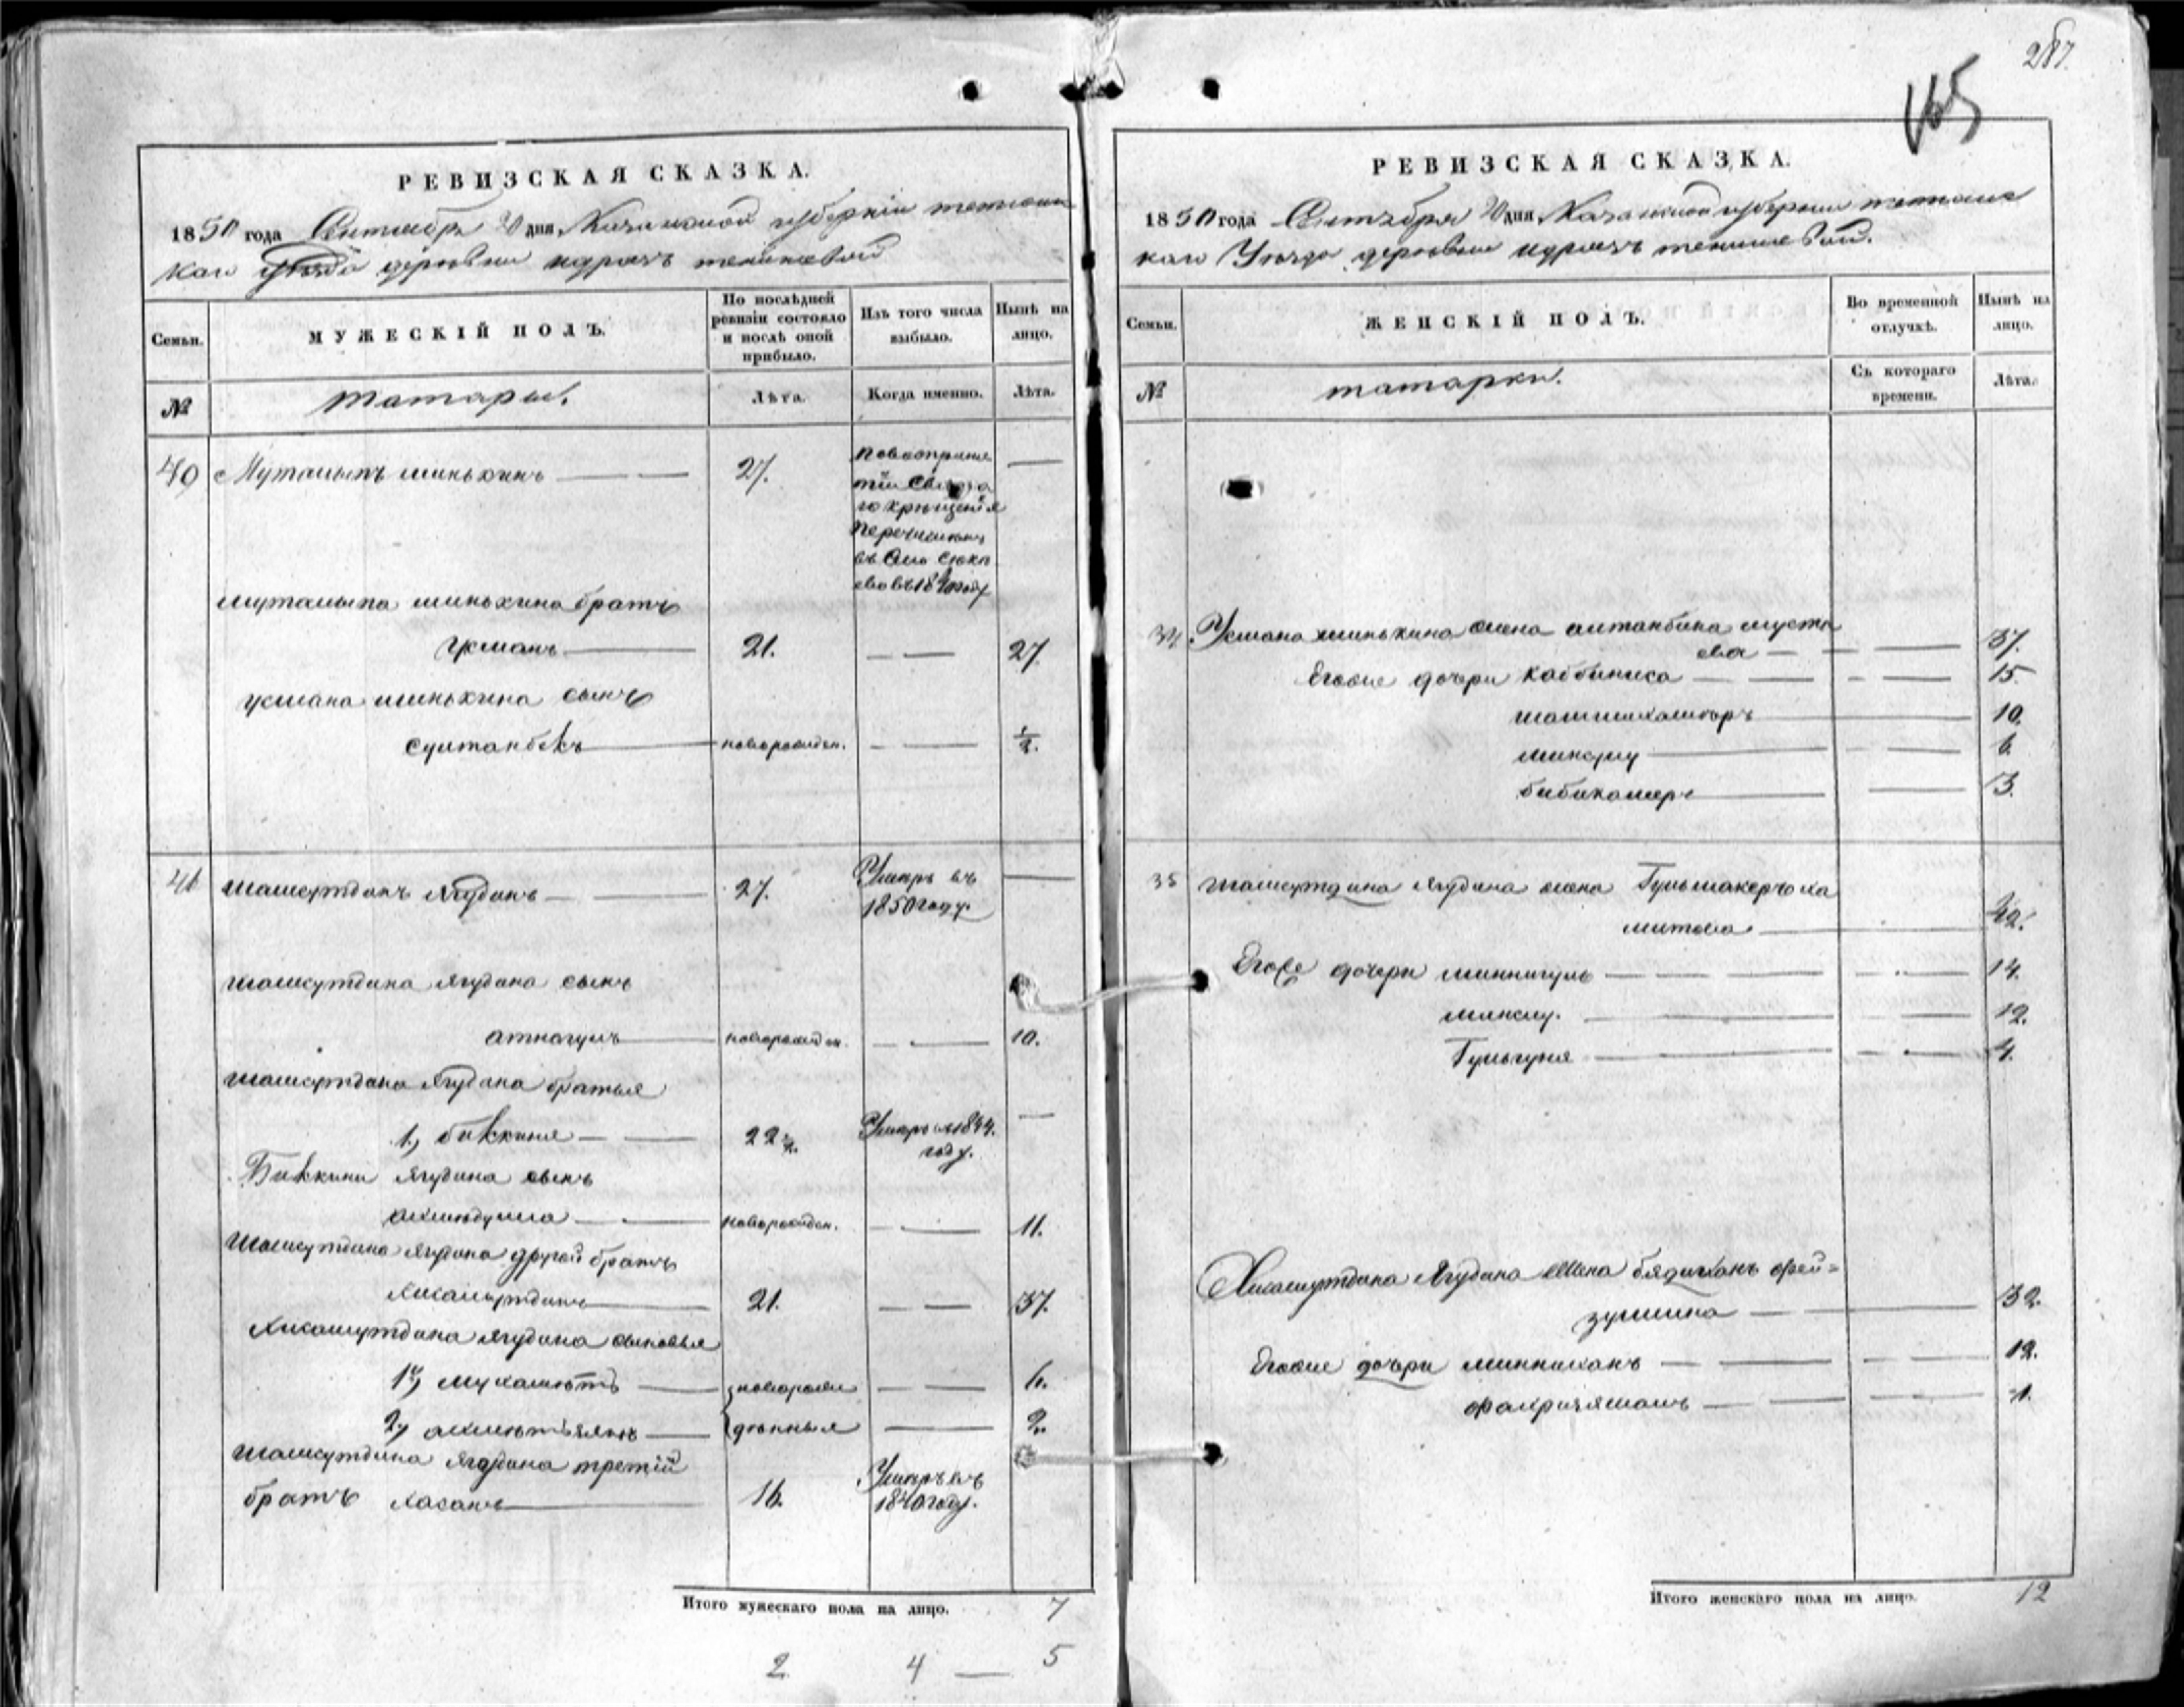 287.
165
РЕВИЗСКАЯ СКАЗКА.
1850 года Сентября 20 дня Казанской губерніи тетюшс
каго уѣзда деревни
Семьи.
МУЖЕСКІЙ ПОЛЪ.
По послѣдней ревизіи состояло и послѣ оной прибыло.
Изъ того числа выбыло.
Нынѣ на лицо.
№
татары.
Лѣта.
Когда именно.
Лѣта.
40 Муталыпъ шинькинъ 27. —
Перечислены
въ 184 году
муталыпа шинькина братъ
усманъ 21. — — 27
усмана шинькина сынъ
султанбекъ новорожден. — — ½.
41 шамсутдинъ ягудинъ 27. Умеръ въ
1850 году. —
шамсутдина ягудина сынъ
атнагулъ новорожден. — — 10.
шамсутдина ягудина братья
1, биккиня 22 ½. Умеръ в 1844.
году. —
Биккини ягудина сынъ
новорожден. — — 11.
Шамсутдина ягудина другой братъ
хисамутдинъ 21. — — 37.
хисамутдина ягудина сыновья
1й, мухаметъ новорож — — 6.
2, денныя — 2.
шамсутдина ягудина третій
братъ хасанъ 16. Умеръ въ
1840 году.
Итого мужескаго пола на лицо. 7
2 4 — 5
РЕВИЗСКАЯ СКАЗКА.
1850 года Сентября 20 дня Казанской губерніи тетюшс
каго Уѣзда деревни
Семьи.
ЖЕНСКІЙ ПОЛЪ.
Во временной отлучкѣ.
Нынѣ на лицо.
№
татарки.
Съ котораго времени.
Лѣта.
34. Усмана шинькина жена алтанбика муста
ева — — — 37.
Еговые дочери хаббиниса — — — 15
10.
минсылу — — 6.
бибикамеръ — 3.
35 шамсутдина ягудина жена Гульшакеръ ха
митова 42.
дочери миннигуль — — — 14.
минслу. — — 12.
Гульгуня — — — 4.
Хисамутдина Ягудина жена бядиханъ фей=
зуллина — — 32.
Еговые дочери минниханъ — — — 12.
— — — 1.
Итого женскаго пола на лицо. 12